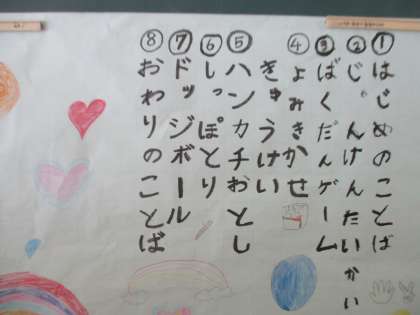 ①はじめのことば
②じゃんけんたいかい
③ばくだんゲーム
④よみきかせ
きゅうけい
⑤ハンカチおとし
⑥しっぽとり
⑦ドッジボール
⑧おわりのことば